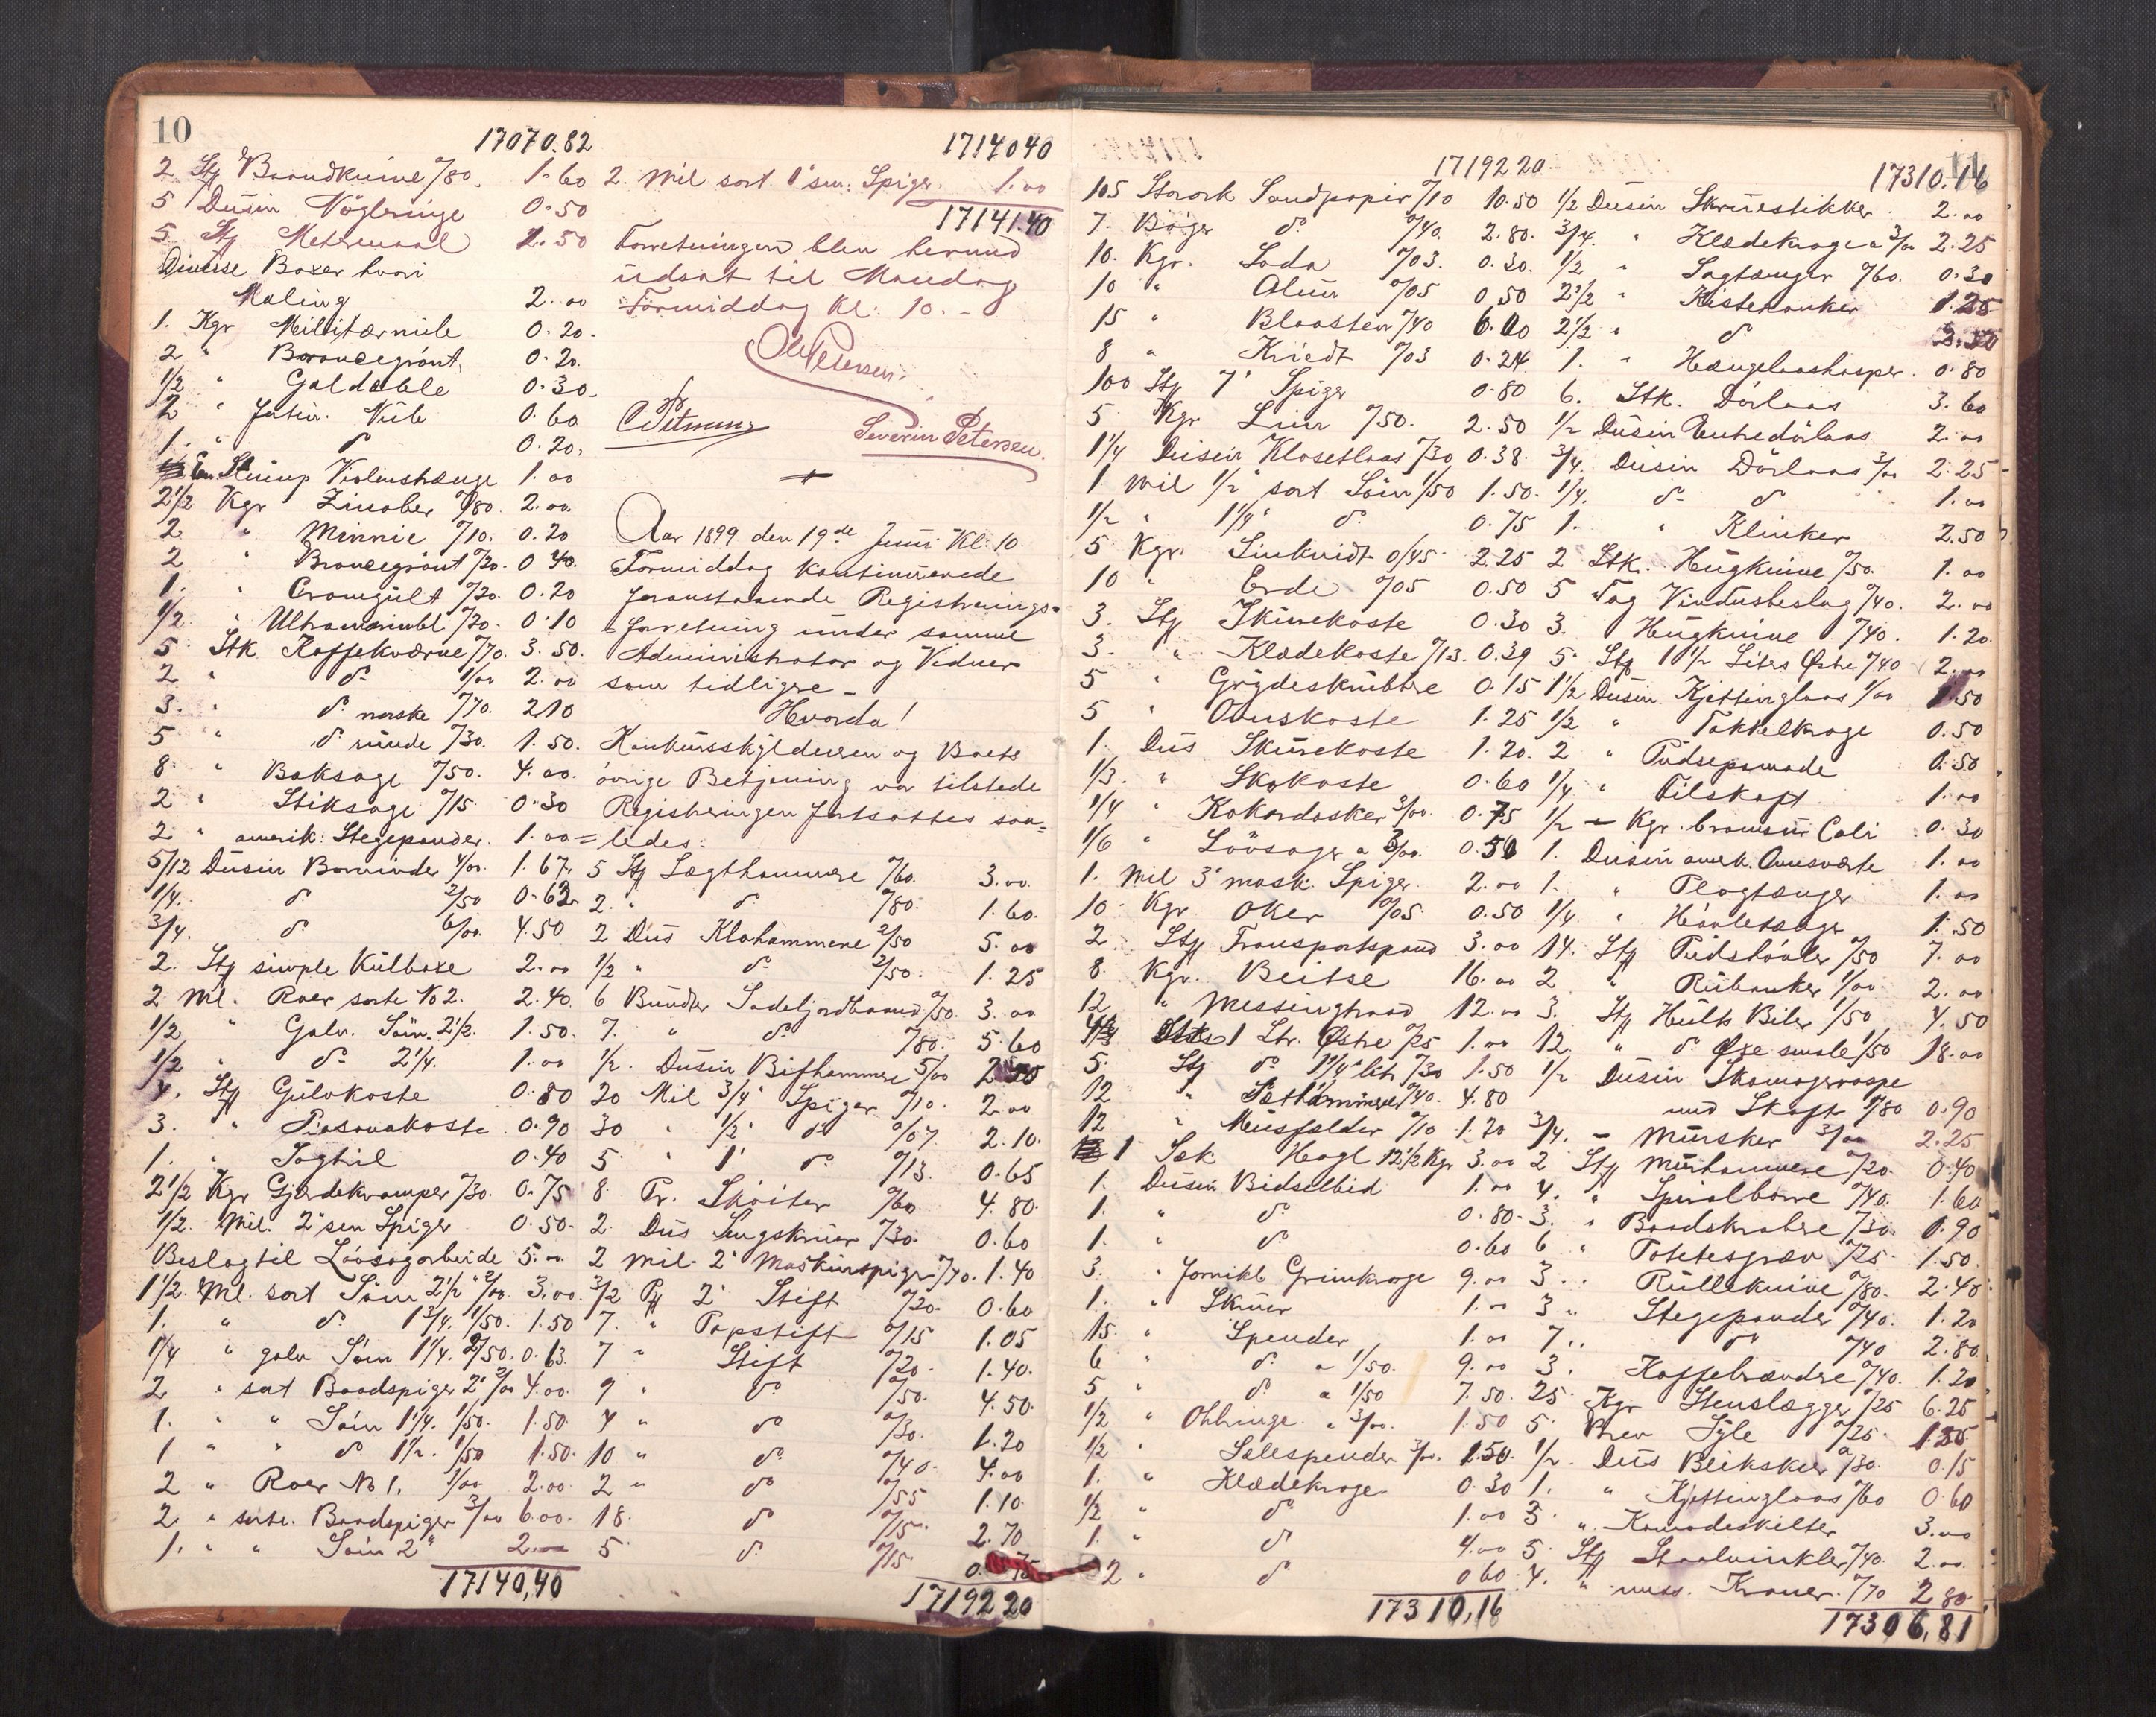 10
17070.82
2 Stk Brandknive 0/80. 1.60
5 Dusin Nögleringe 0.50
5 Stk Metermaal 2.50
Diverse Boxer hvori
Maling 2.00
1. Kgr Militærmile 0.20.
2 " Broncegrönt 0.20.
1/2 " Guld 0.30
2 " 0.60
1. " do 0.20.
En Stump Violinstrænge 1.00
2 1/2 Kgr Zinober 0/80. 2.00.
2 " Minnie 0/10. 0.20
2 " Broncegrönt 0/20. 0 40.
1. " Cromgult 0/20. 0.20
1/2 " Ultramarinbl 0/20. 0.10
5 Stk Kaffekværne 0/70. 3.50.
2 " do 1/00 2.00
3. " do norske 0/70. 2.10
5 " do runde 0/30. 1.50.
8 " Baksage 0/50. 4.00.
2 " Stiksage 0/15 0.30
2 " amerik: Stegepander. 1.00
5/12 Dusin Borvinder 4/00. 1.67.
1/4. do 2/50 0.63
3/4. do 6/00. 4.50
2. Stk simple Kulboxe 2.00
2 Ml. Roer sorte No 2. 2.40.
1/2 " Galv. Söm 2 1/2. 1.50.
1/2 " do 2 1/4. 1.00
4. Stk Gulvkoste 0.80
3. " Piasavakoste 0.90
1. " Sagfil 0.40
2 1/2 Kgr Gjærdekramper 0/30. 0.75
1/2. Mil. 2" sm Spiger 0.50.
Beslag til Lövsagarbeide 5.00
1 1/2. Ml. sort Söm 2 1/2" 2/00. 3.00.
1. " do 1 3/4. 1/50. 1.50
1/4 " galv Söm 1 1/4. 2/50. 0.63.
2 " sort Baadspiger 2" 2/00 4.00.
1. " " Söm 1 1/4. 1/50. 1.50.
1 " " do 1 1/2. 1/50 1.50.
2 " Roer No 1. 1/00 2.00
2. " sorte. Baadspiger 3/00 6.00.
1. " " Söm 2" 2.—
17140,40
1714040
2. Mil sort 1" sm: Spiger. 1.00
17141.40
Forretningen blev herved
udsat til Mandag
Formiddag Kl: 10. –
Ole Petersen.
Severin Petersen.
Aar 1899 den 19de Juni Kl: 10
Formiddag kontinuerede
foranstaaende Registrerings-
forretning under samme
Administrator og Vidner
som tidligere –
Hvorda!
Konkursskyldneren og Boets
övrige Betjening var tilstede
Registreringen fortsattes saa=
=ledes:
5 Stk Lægthammere 0/60. 3.00.
2. " do 0/80. 1.60.
2 Dus Klohammere 2/50 5.00
1/2 " do 2/50. 1.25
6 Bundter Sadelgjordbaand 0/50. 3.00
7. " do 0/80. 5.60
1/2. Dusin Bifhammere 5/00 2 50
20 Mil 3/4" Spiger 0/10. 2.00
30 " 1/2" do 0/07. 2.10.
5 " 1" do 0/13. 0.65
8 Pr. Sköiter 0/60 4.80.
2. Dus Sengskruer 0/30. 0.60
2 Mil. 2" Maskinspiger 0/70. 1.40
3/2 Pk 2" Stift 0/20. 0.60
7. " Papstift 0/15 1.05
7 " Stift 0/20. 1.40.
9 " do 0/50. 4.50.
4 " do 0/30. 1.20
10 " do 0/40. 4.00
2 " do 0/55 1.10.
18. do 0/15. 2.70
5 do 0/15 0.75
17192 20
11
17192 20.
105 Stk Sandpapir 0/10 10.50
7. Böger do 0/40. 2.80.
10. Kgr. Soda 0/03. 0.30.
10 " Alun 0/05 0.50
15 " Blaasten 0/40 6.00
8 " Kridt 0/03 0.24
100 Stk 7" Spiger 0.80
5 Kgr Lim 0/50. 2.50
1 1/4 Dusin Klosetlaas 0/30 0.38.
1 Mil 1/2" sort Söm 1/50 1.50.
1/2 " 1 1/4" do 0.75
5 Kgr. Sinkvidt 0/45 2.25
10 " Erde 0/05 0.50
3. Stk Skurekoste 0.30
3. " Klædekoste 0/13. 0.39
5 " Grydeskubbe 0.15
5 " Ovnskoste 1.25
1. Dus Skurekoste 1.20.
1/3. " Skokoste 0.60
1/4 " Kokardasker 3/00. 0.75
1/6 " Lövsager a 3/00. 0.50
1. Mil 3" mask. Spiger. 2.00
10. Kgr Oker 0/05. 0.50
2. Stk Transportspand 3.00
8. Kgr. Beitse 16.00
12 " Messingtraad 12.00
1 Ltr. Østre 0/25 1.00
5. Stk do 1 1/4 litr 0/30 1.50
12 " 0/40. 4.80
12 " Musfælder 0/10 1.20
1 Sæk Hagl 12 1/2 Kgr 3.00
1. Dusin Bidselbid 1.00
1. " do 0.80.
1. " do 0.60
3. " Grimkroge 9.00
1. " Skruer 1.00
15. " Spender 1.00
6 " do a 1/50. 9.00
5 " do a 1/50 7.50.
1/2 " a 3/00. 1.50
1/2 " Selespender 3/00. 1.50.
1. " Klædekroge 0.30
1/2 " do 1.00
1. " do 4.00
2 " do 0 60
17310,16
17310.16
1/2 Dusin Skruestikker 2.00
3/4. " Klædekroge a 3/00 2.25
1/2 " Sagtænger 0/60. 0.30
2 1/2 " Kistehanker 1.25
2 1/2 " do 2.50
1. " Hængelaashasper. 0.80
6. Stk. Dörlaas 3.60
1/2 Dusin Entredörlaas 2.00
3/4. Dusin Dörlaas 3/00 2.25
1/4. do do 1.00
1. " Klinker 2.50
2 Stk. Hugknive 0/50. 1.00
5 Fag Vindusbeslag 0/40. 2.00
3. Hugknive 0/40. 1.20.
5 Stk 1 1/2 Liters Østre 0/40 2.00
1 1/2 Dusin Kjettinglaas 1/00 1.50
1/2 " Takkelkroge 0.50
2 " Pudsepomade 0.50
1/4 " Filskaft 1.00
1/2 Kgr. Cali 0.30
1. Dusin amerk. Ovnsværte 1.00
1. " Flagtænger 1.00
1/4 " Hövletsager 1.50
14. Stk Pudshövler 0/50 7.00
2 " Rubanker 1/00. 2.00
3. Stk Hults Biler 1/50 4.50
12. " do Øxe smale 1/50 18.00
1/2 Dusin Skomagerraspe
med Skaft 0/80 0.90
3/4. – Mursker 3/00 2.25
2 Stk Murhammere 0/20. 0.40
4. " Spiralbore 0/40. 1.60
3. " Baadskrabere 0/30. 0.90
6 " Potetesgræv 0/25. 1.50.
3. " Rulleknive 0/80. 2.40.
3 " Stegepander 0/40. 1.20
7. " do 0/40 2.80.
3. Kaffebrændere 0/40. 1.20
25. Kgr Stenslægger 0/25 6.25
5. Brev Syle 0/25. 1.25.
1/2. Dus Blikskeer 0/30. 0.15
1. " Kjettinglaas 0/60 0.60
3. " Komodeskilter 3.00
5. Stk Staalvinkler 0/40. 2.00.
4. " mess. Kraner. 0/70 2.80.
17306,81